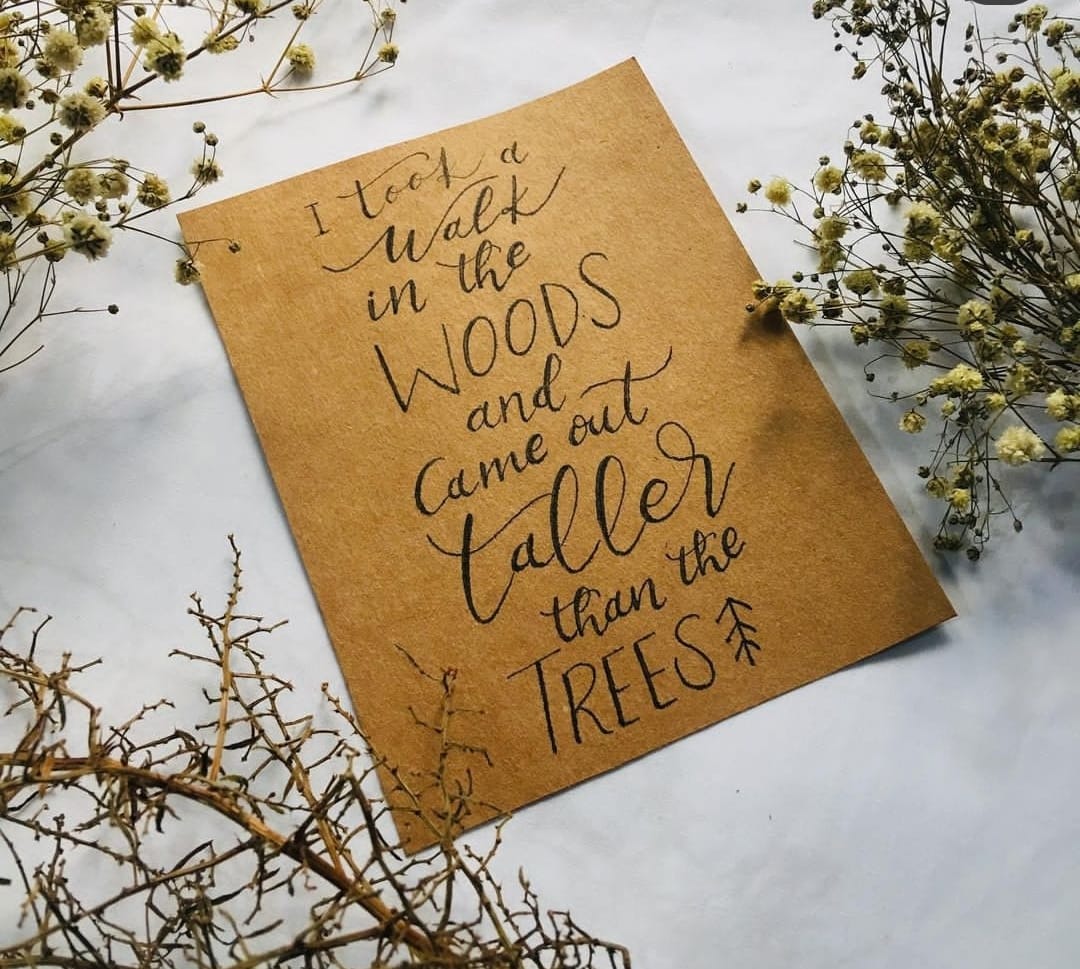 I took a
Walk
in the
WOODS
and
Came out
taller
than the
TREES